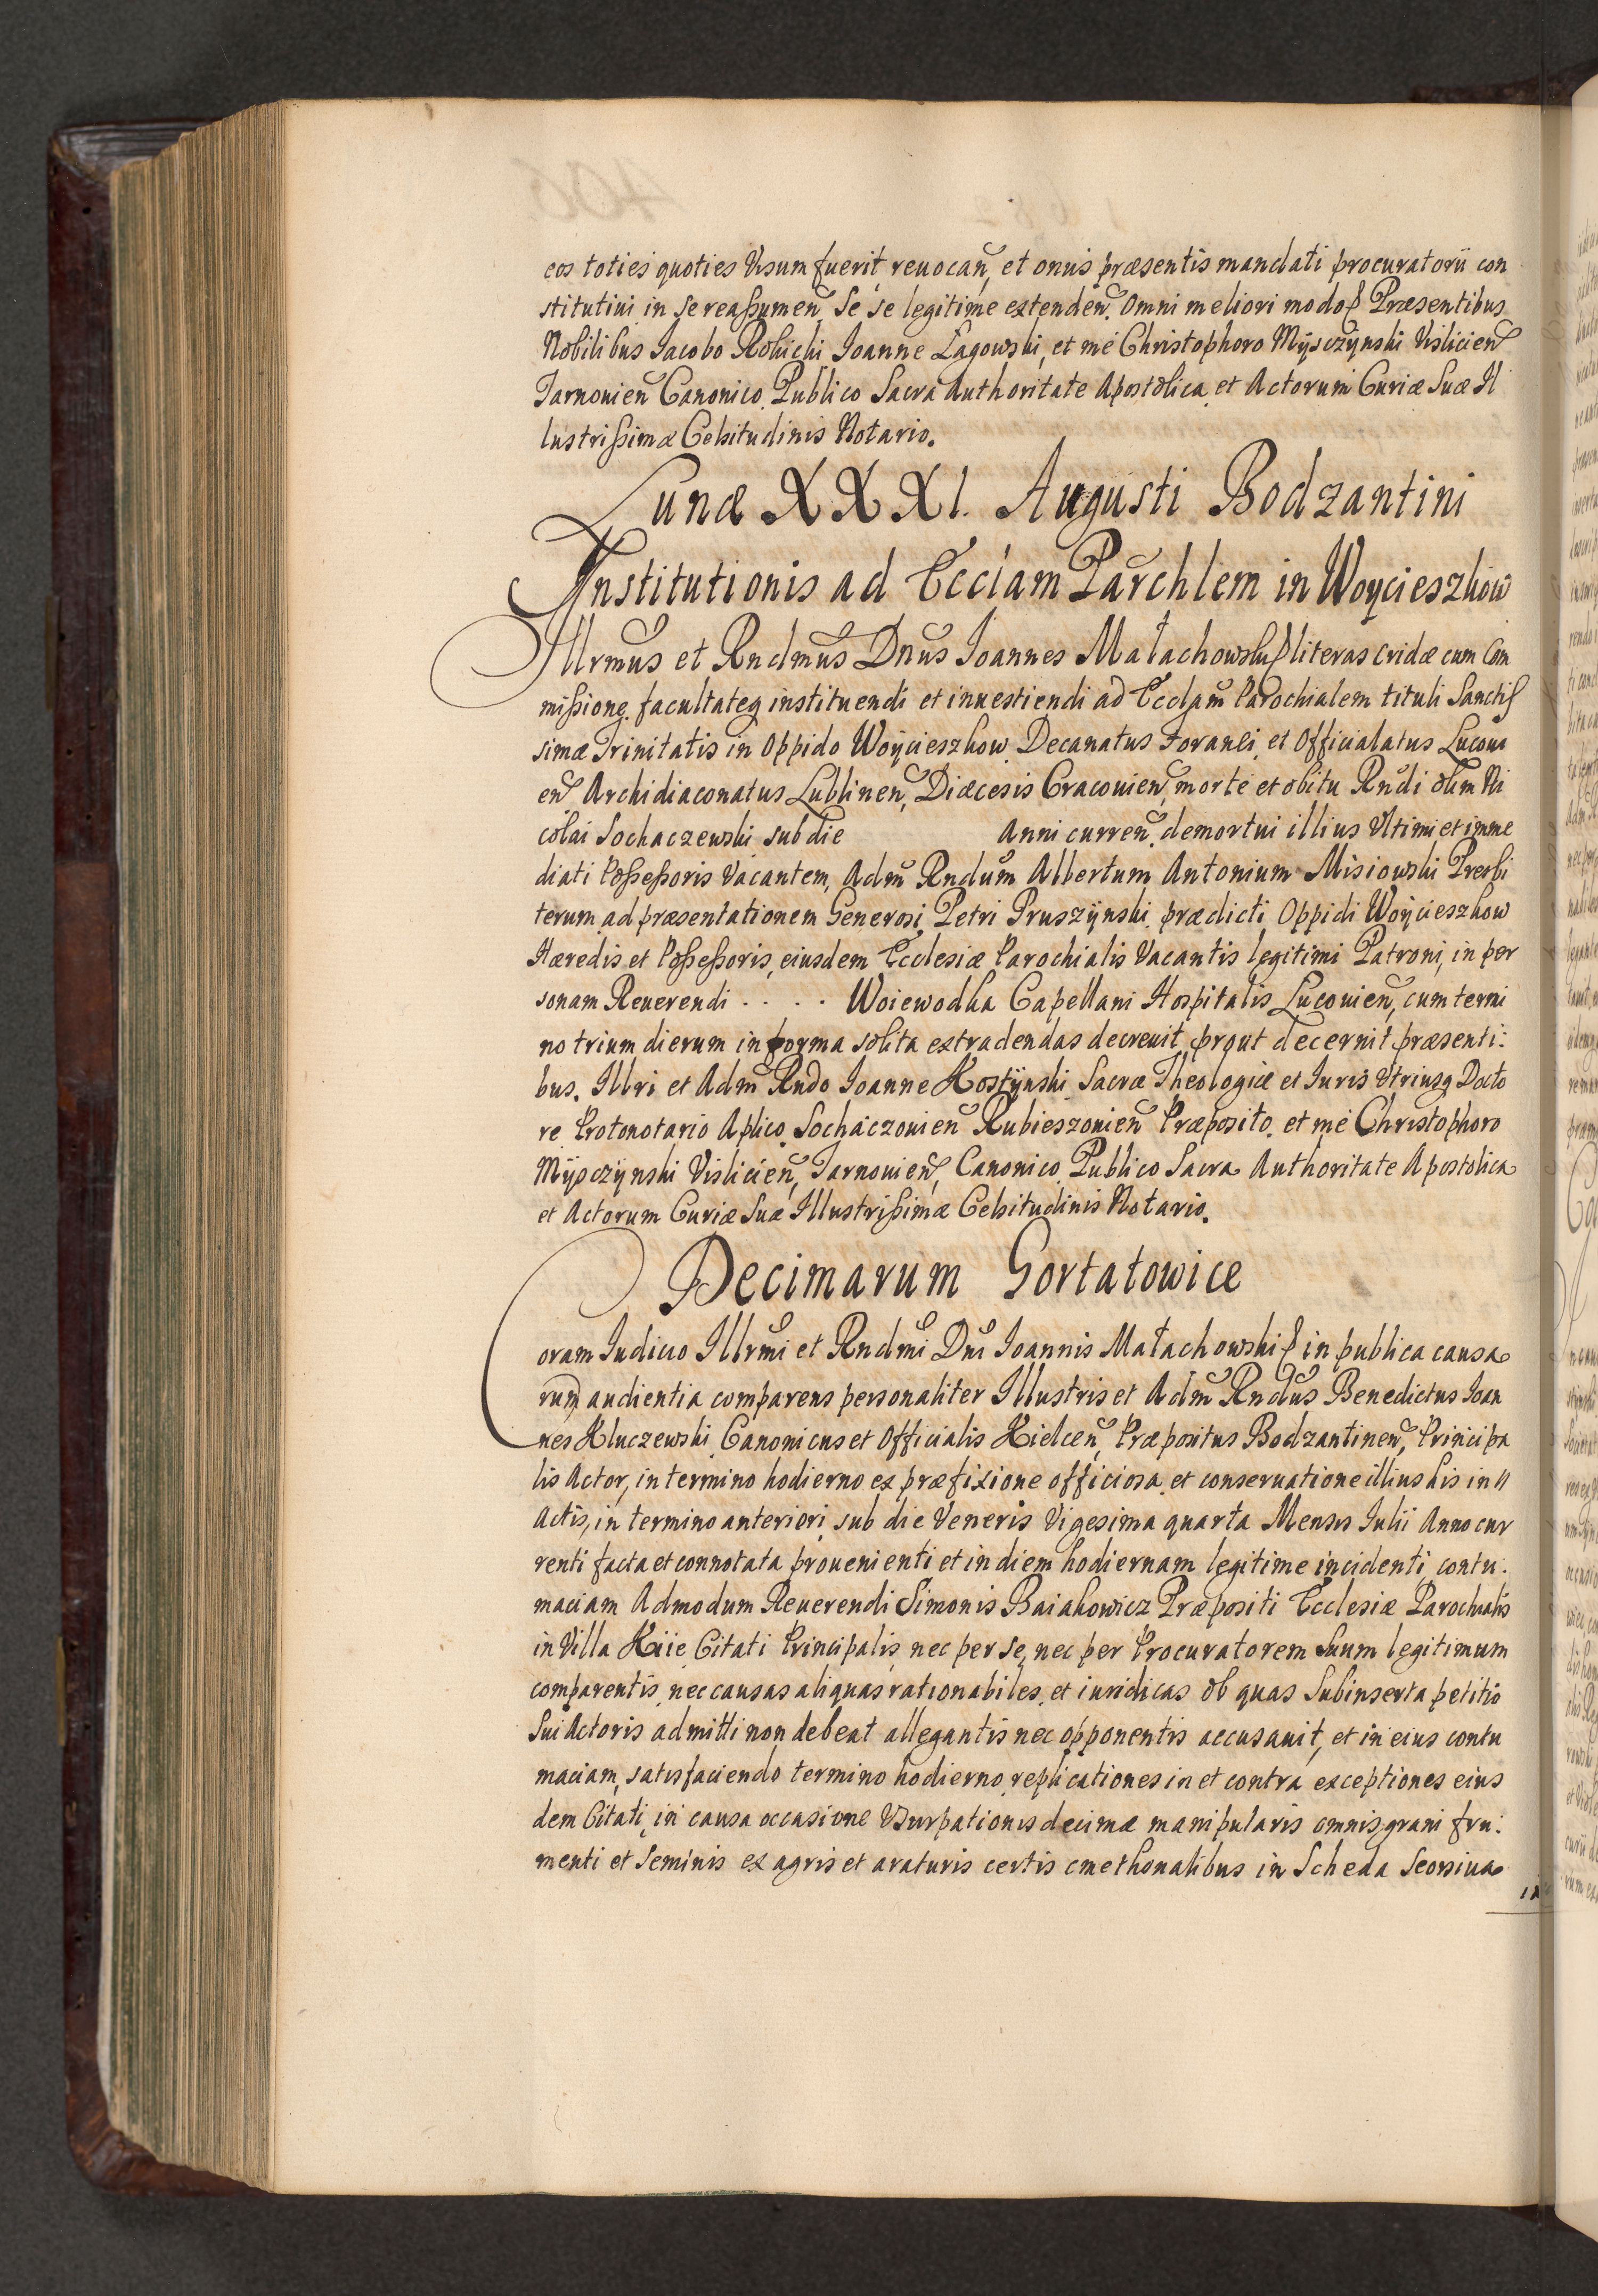 eos toties quoties Visum fuerit reuocan̄, et onus præsentis mandati procuratorii con
stitutiui in se reaſsumen̄ Se se legitime extenden̄. Omni meliori modo ꝑ Præsentibus
Nobilibus Iacobo Rokicki Ioanne Łagowski, et me Christophoro Mÿsczÿnski Vislicien̄
Tarnouien̄ Canonico Publico Sacra Authoritate Apostolica et Actorum Curiæ Suæ Il
lustriſsimæ Celsitudinis Notario.
Lunæ XXXI. Augusti Bodzantini
Institutionis ad Eccłam Parchlem in Woycieszkow
Illrmus et Rndmus Dnus Ioannes Małachowski ꝑ literas cridæ cum Com
miſsione facultateq instituendi et inuestiendi ad Ecclam Parochialem tituli Sanctiſ
simæ Trinitatis in Oppido Woÿcieszkow Decanatus Foranei et Officialatus Lucoui
en̄ Archidiaconatus Lublinen̄, Diæcesis Cracouien̄, morte et obitu Rndi olim Ni
colai Sochaczewski sub die Anni curren̄. demortui illius Vltimi et imme
diati Poſseſsoris Vacantem, Adm Rndum Albertum Antonium Misiowski Presbi
terum ad præsentationem Generosi Petri Pruszÿnski prædicti Oppidi Woÿcieszkow
Hæredis et Poſseſsoris, eiusdem Ecclesiæ Parochialis Vacantis legitimi Patroni, in per
sonam Reuerendi . . . . Woiewodka Capellani Hospitalis Lucouien̄, cum termi
no trium dierum in forma solita extradendas decreuit, prout decernit præsenti:
bus. Illri et Adm Rndo Ioanne Kostÿnski Sacræ Theologiæ et Iuris Vtriusq Docto
re Protonotario Aplico Sochaczouien̄ Rubieszouien̄ Præposito. et me Christophoro
Mÿsczÿnski Vislicien̄, Tarnouien̄, Canonico Publico Sacra Authoritate Apostolica
et Actorum Curiæ Suæ Illustriſsimæ Celsitudinis Notario.
Decimarum Gortatowice
Coram Iudicio Illrmi et Rndmi Dni Ioannis Małachowski ꝑ in publica causa
rum audientia comparens personaliter Illustris et Adm Rndus Benedictus Ioan
nes Kluczewski Canonicus et Officialis Kielcen̄, Præpositus Bodzantinen̄, Principa
lis Actor, in termino hodierno ex præfixione officiosa et conseruatione illius his in
Actis, in termino anteriori sub die Veneris Vigesima quarta Mensis Iulii Anno cur
renti facta et connotata prouenienti et in diem hodiernam legitime incidenti contu:
maciam Admodum Reuerendi Simonis Baiakowicz Præpositi Ecclesiæ Parochialis
in Villa Kiie Citati Principalis, nec per se, nec per Procuratorem Suum legitimum
comparentis, nec causas aliquas rationabiles et iuridicas ob quas Subinserta petitio
Sui Actoris admitti non debeat allegantis nec opponentis accusauit, et in eius contu
maciam, satisfaciendo termino hodierno replicationes in et contra exceptiones eius
dem Citati, in causa occasione Vsurpationis decimæ manipularis omnis grani fru:
menti et Seminis ex agris et araturis certis cmethonalibus in Scheda Seorsiua